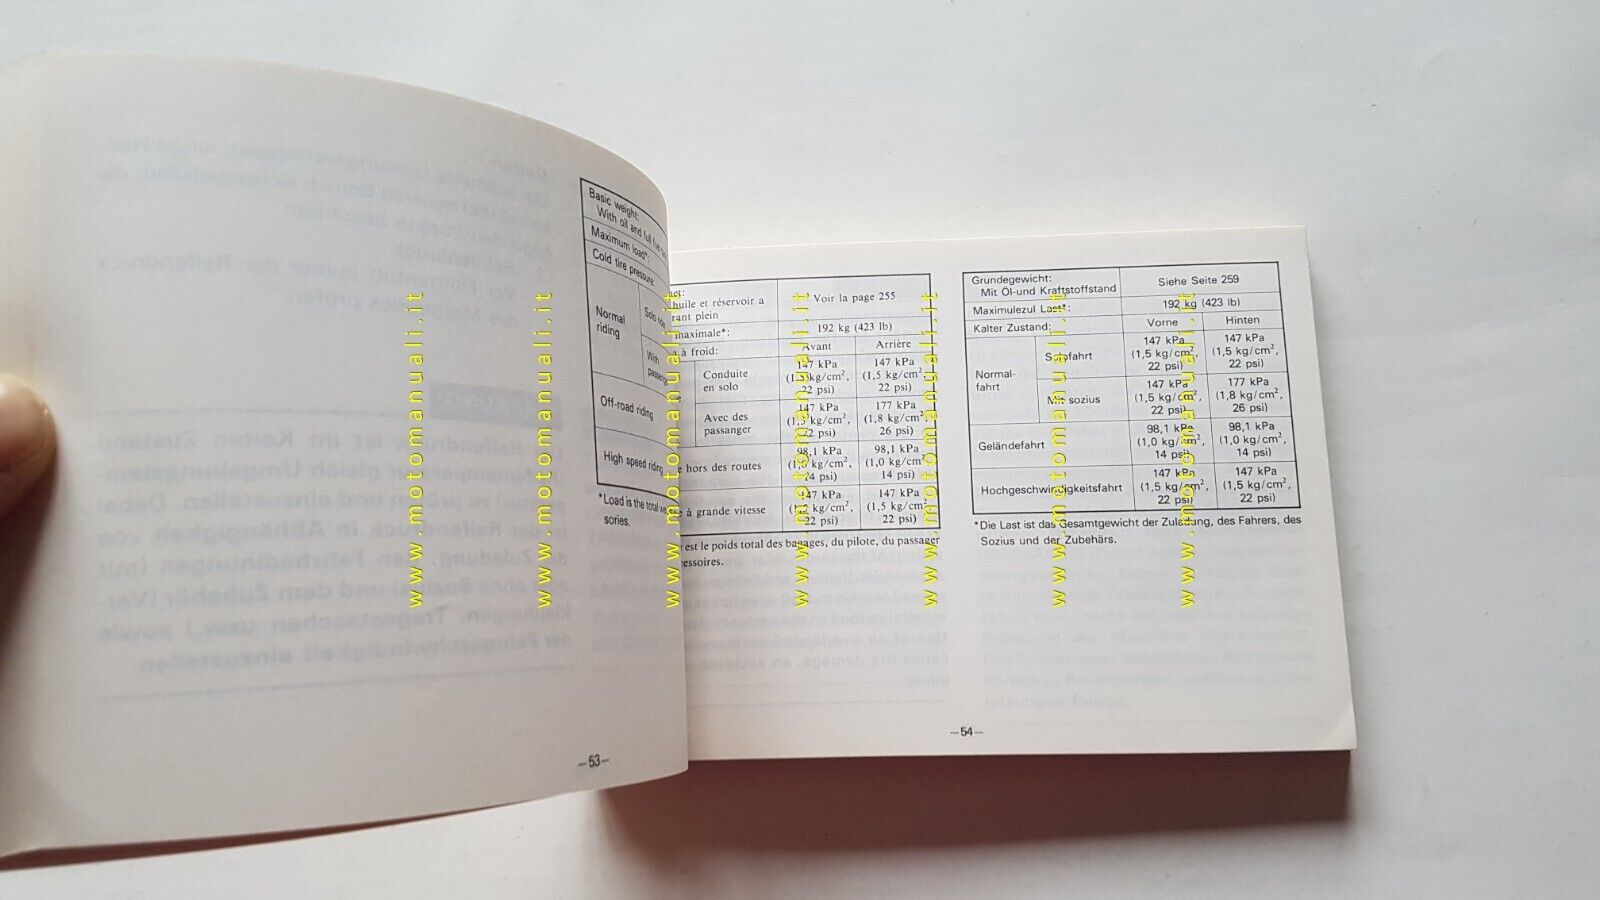 Basic weight:
With oil and full fuel
Maximum load*:
Cold tire pressure:
Normal
riding
Solo
With
Off-road riding
High speed riding
*Load is the total
sories.
—53—
huile et réservoir a
plein
Voir la page 255
maximale*:
192 kg (423 lb)
à froid:
Avant
Arrière
Conduite
en solo
147 kPa
(1,5 kg/cm²,
22 psi)
147 kPa
(1,5 kg/cm²,
22 psi)
Avec des
passanger
147 kPa
(1,5 kg/cm²,
22 psi)
177 kPa
(1,8 kg/cm²,
26 psi)
hors des routes
98,1 kPa
(1,0 kg/cm²,
14 psi)
98,1 kPa
(1,0 kg/cm²,
14 psi)
à grande vitesse
147 kPa
(1,5 kg/cm²,
22 psi)
147 kPa
(1,5 kg/cm²,
22 psi)
est le poids total des bagages, du pilote, du passager
Grundegewicht:
Mit Öl-und Kraftstoffstand
Siehe Seite 259
Maximulezul Last*:
192 kg (423 lb)
Kalter Zustand:
Vorne
Hinten
Normal-
fahrt
Solofahrt
147 kPa
(1,5 kg/cm²,
22 psi)
147 kPa
(1,5 kg/cm²,
22 psi)
Mit sozius
147 kPa
(1,5 kg/cm²,
22 psi)
177 kPa
(1,8 kg/cm²,
26 psi)
Geländefahrt
98,1 kPa
(1,0 kg/cm²,
14 psi)
98,1 kPa
(1,0 kg/cm²,
14 psi)
Hochgeschwindigkeitsfahrt
147 kPa
(1,5 kg/cm²,
22 psi)
147 kPa
(1,5 kg/cm²,
22 psi)
*Die Last ist das Gesamtgewicht der Zuladung, des Fahrers, des
Sozius und der Zubehärs.
—54—
www.motomanuali.it
www.motomanuali.it
www.motomanuali.it
www.motomanuali.it
www.motomanuali.it
www.motomanuali.it
www.motomanuali.it